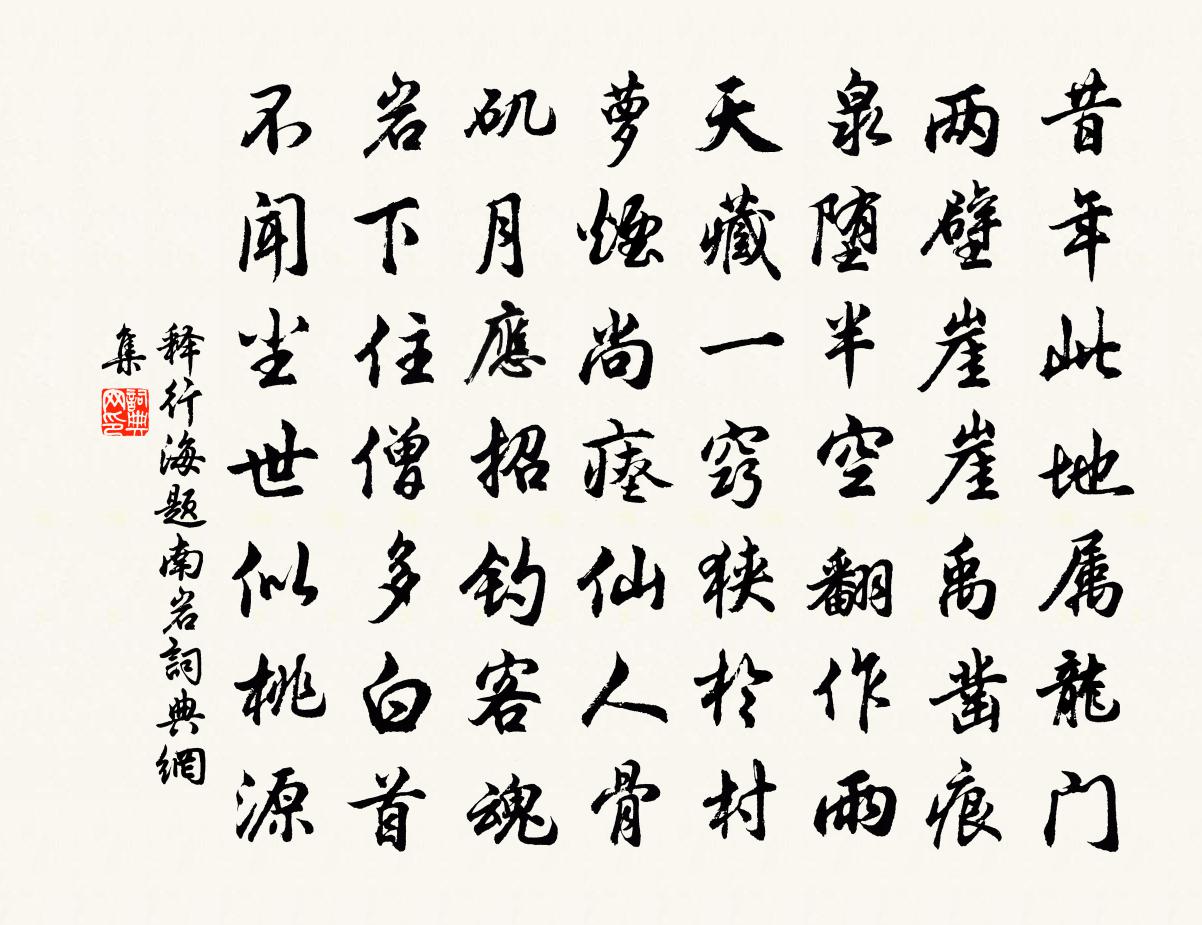 昔年此地属龍门
两壁崖崖禹凿痕
泉堕半空翻作雨
天藏一窍狭於村
萝煙尚瘗仙人骨
矶月應招钓客魂
岩下住僧多白首
不闻尘世似桃源
释行海题南岩詞典網
集
詞典
网印